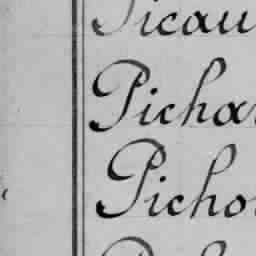 Picau
Picha
Picho